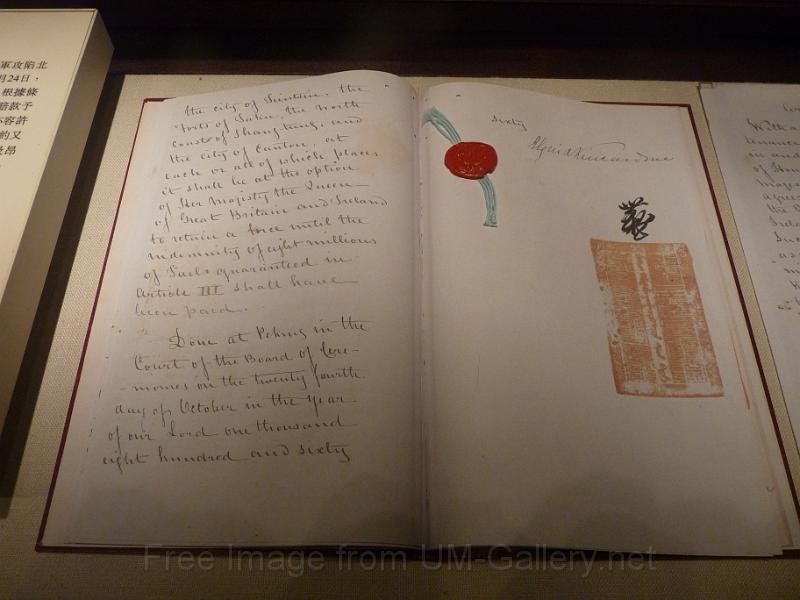 軍攻陷北
月24日，
根據條
賠款予
亦容許
約又
the city of Tientsin, the
Forts of Taku, the north
coast of Shang tung, and
the city of Canton, at
each or all of which places
it shall be at the option
of Her Majesty the Queen
of Great Britain and Ireland
to retain a force until the
indemnity of eight millions
of Taels guaranteed in
Article III shall have
been paid.
Done at Peking in the
Court of the Board of Cere-
-monies on the twenty fourth
day of October in the Year
of our Lord one thousand
eight hundred and sixty
sixty
Elgin & Kincardine
With a
tenance
on and
of Hon
Majes
agree
the
Irela
Suc
as
m
Free Image from UM-Gallery.net